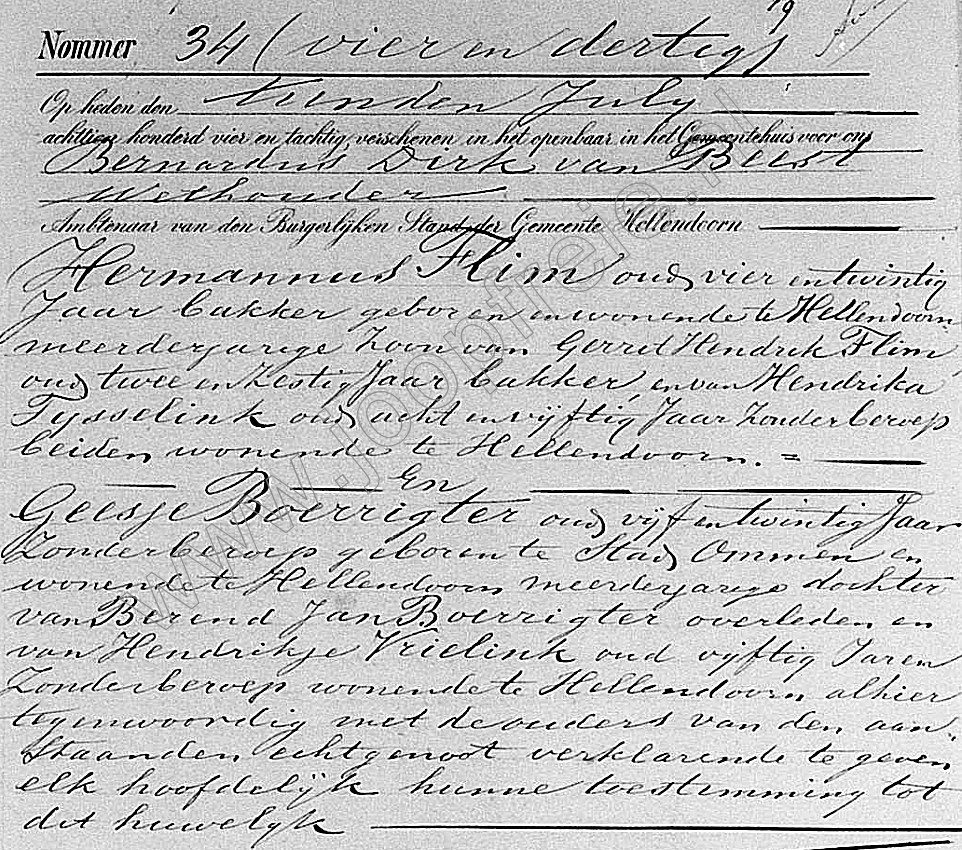 19
Nommer 34 (vier en dertig)
Op heden den Nunden July
achttien honderd vier en tachtig, verschenen in het openbaar in het Gemeentehuis voor ons
Bernardus Dirk van Beest
Wethouder
Ambtenaar van den Burgerlijken Stand der Gemeente Hellendoorn
Hermannus Flim oud vier en twintig
Jaar bakker geboren en wonende te Hellendoorn
meerderjarige Zoon van Gerret Hendrik Flim
oud twee en Zestig Jaar bakker, en van Hendrika
Tysselink oud acht en vijftig Jaar Zonder beroep
beiden wonende te Hellendoorn. =
En
Geesje Boerrigter oud vijf en twintig Jaar
Zonder beroep geboren te Stad Ommen en
wonende te Hellendoorn meerderjarige dochter
van Berend Jan Boerrigter overleden en
van Hendrikje Vrielink oud vijftig Jaren
Zonder beroep wonende te Hellendoorn alhier
tegenwoordig met de ouders van den aan-
Staanden echtgenoot verklarende te geven
elk hoofdelijk hunne toestemming tot
dit huwelyk
www.joopfreie.nl